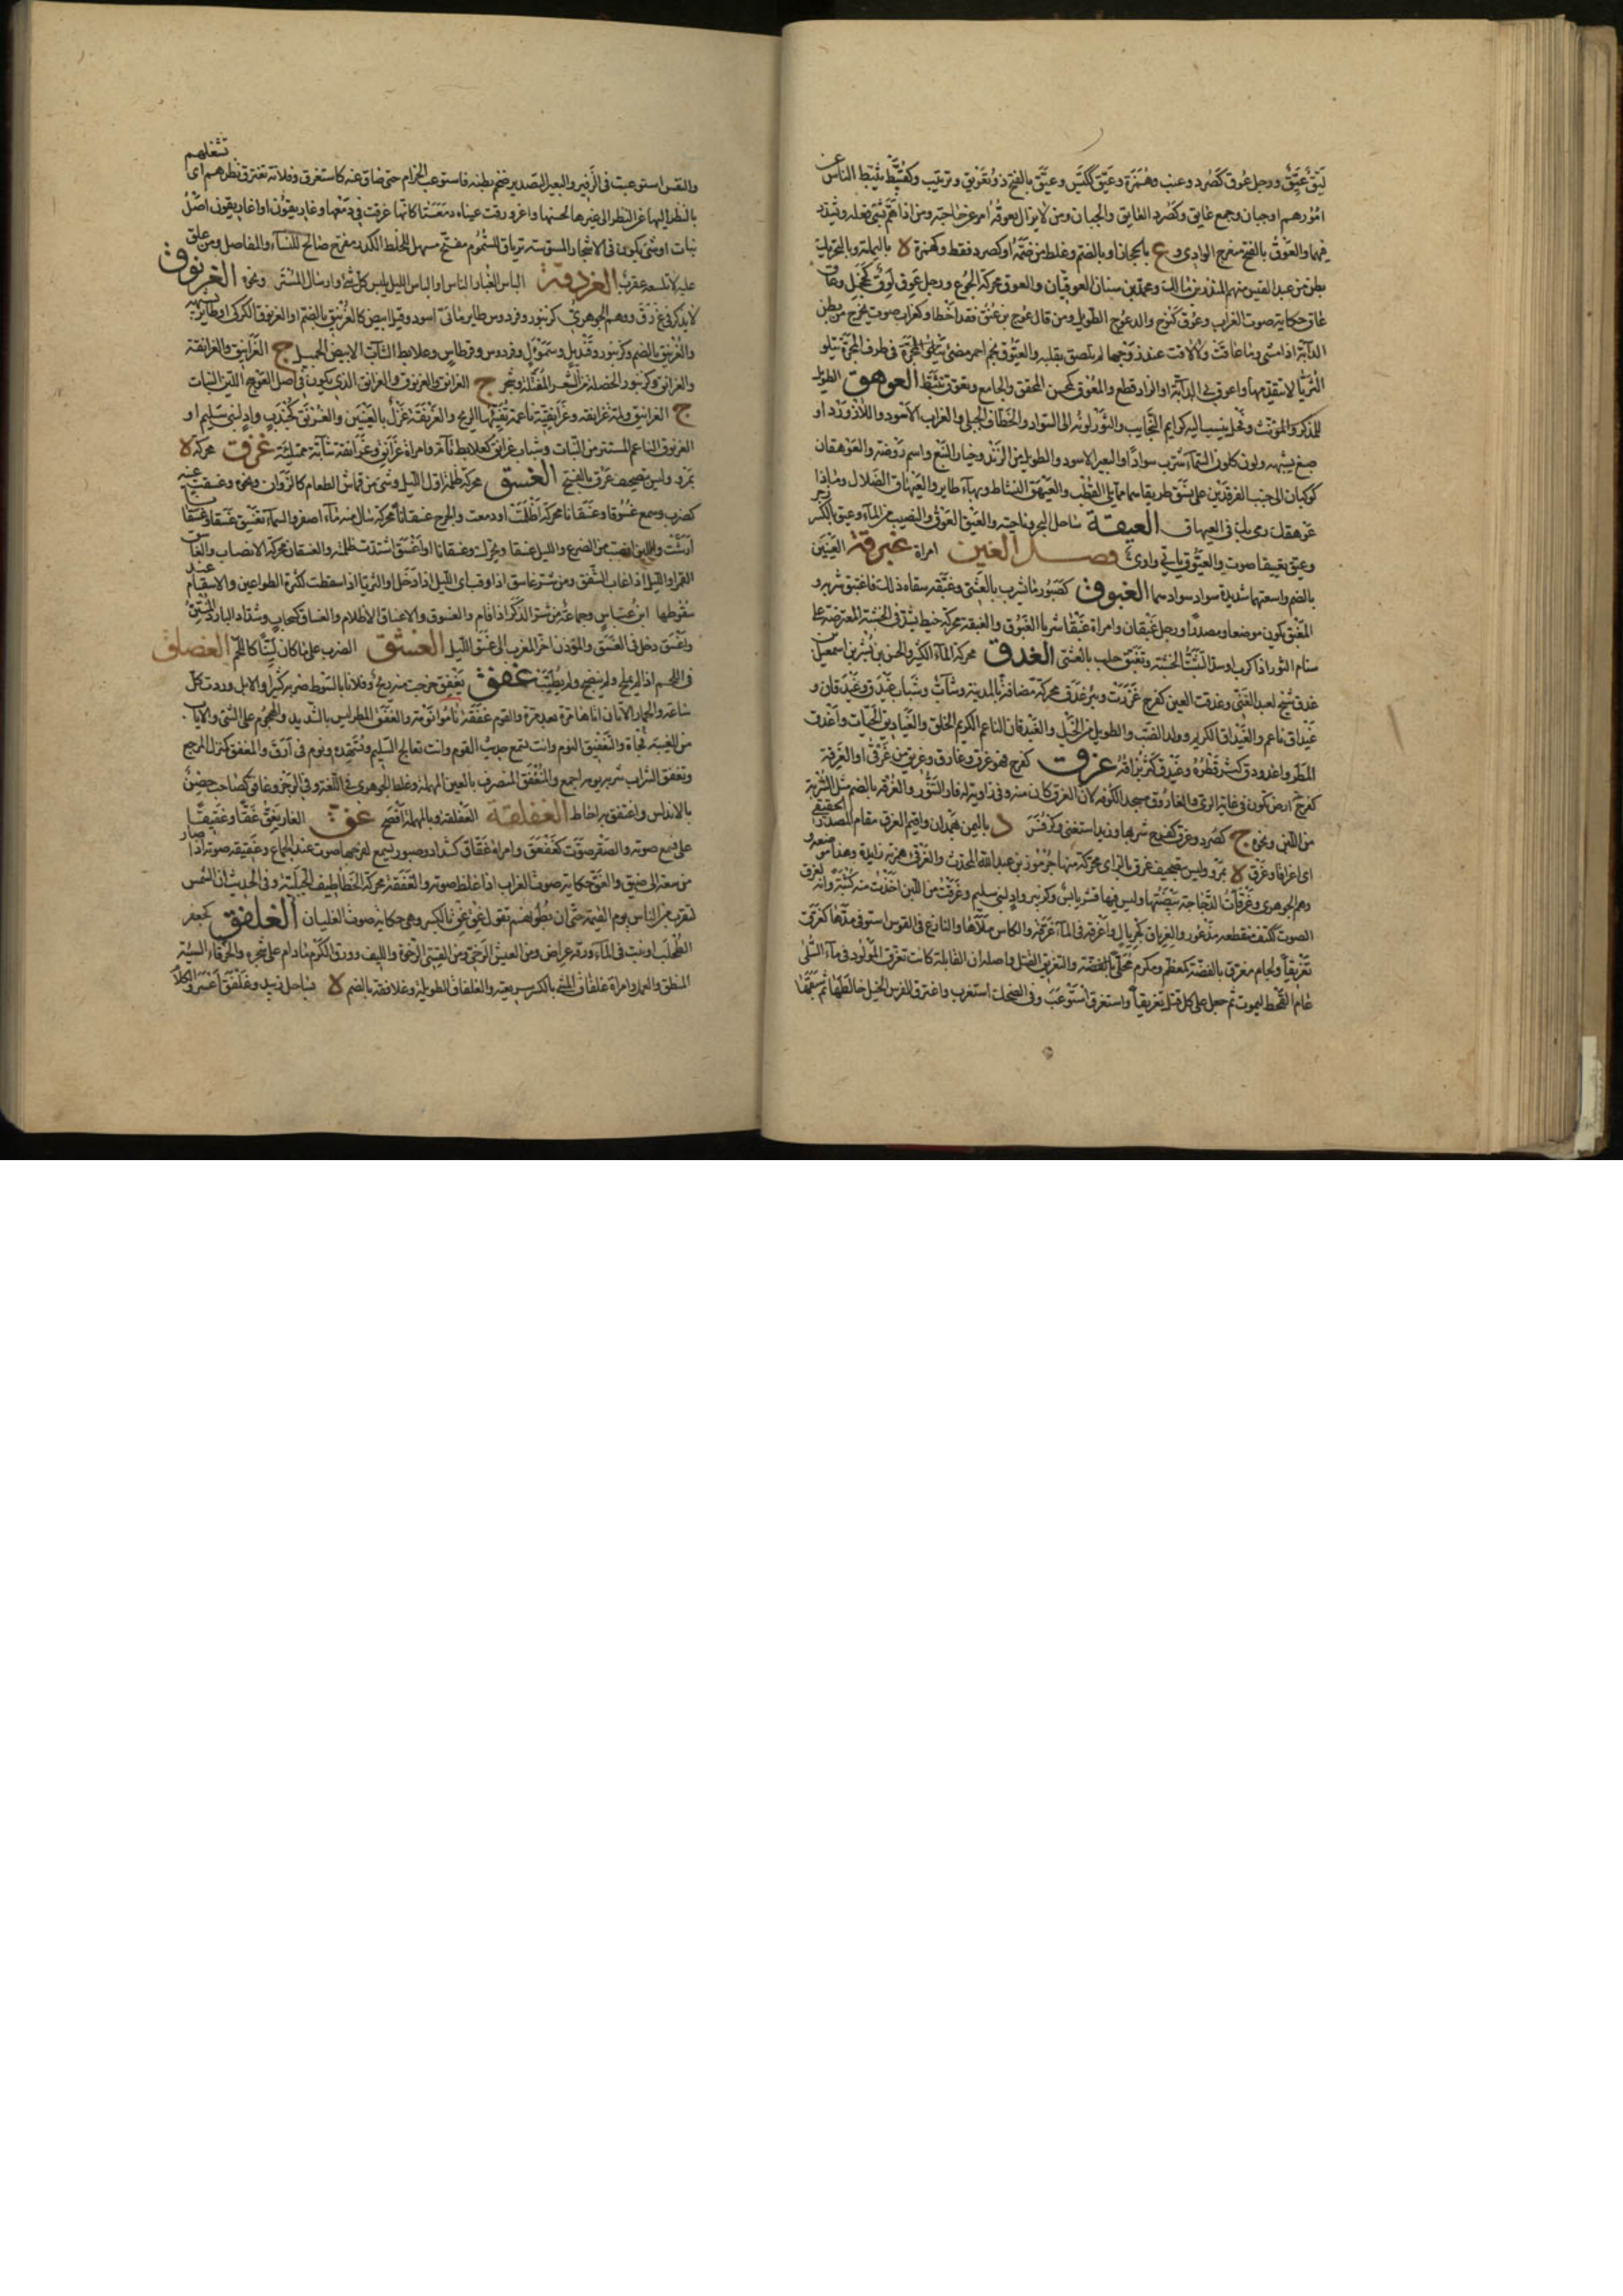 لبق عيق ورجل عوق كصرد وعنب وهمزة وعيق ككيس وعيق بالفتح ذو تعويق وتربيث وكقبيط يثبط الناس عن
امورهم او جبان وجمع عايق وكصرد العايق والجبان ومن لا يزال يعوقه امر عن حاجته ومن اذا هم بشئ فعله
فيهما والعوق بالفتح منعرج الوادى و ع بالحجاز او بالضم وغلط من فتحه او كصرد فقط وكهمزة لا
بطن من عبد القيس منهم المنذر بن مالك ومحمد بن سنان العوقيان والعوق محركة الجوع ورجل عوق لوق
غاق حكاية صوت الغراب وعوق كنوح والد عوج الطويل ومن قال عوج بن عنق فقد اخطا وكغراب صوت يخرج من بطن
الدابة اذا مشى وما عاقت ولا لاقت عند زوجها لم تلصق بقلبه والعيوق نجم احمر مضئ فى طرف المجرة يتلو
الثريا لا يتقدمها واعوق بى الدابة او الزاد قطع والمعوق كمحسن المخفق والجايع وتعوق تثبط العوهق الطويل
للمذكر والمؤنث وفحل ينسب اليه كرايم النجايب والثور لونه الى السواد والخطاف الجبلى والغراب الاسود واللازورد او
صبغ يشبهه ولون كلون السماء مشرب سوادا والبعير الاسود والطويل من الربد وخيار النبع واسم روضة والعوهقان
كوكبان الى جنب الفرقدين على نسق طريقاهما مما يلى القطب والعيهق النشاط وبهاء طاير والعيهاق الضلال وماذا
عوهقك ورمى بك فى العيهاق العيقة ساحل البحر وناحيته والعيق العوق والنصيب من الماء وعيق بالكسر زجر
وعيق تعييقا صوت والعيوق يائى واوى فصل الغين امراة غبرقة العينين
بالضم واسعتهما شديدة سواد سوادهما الغبوق كصبور ما يشرب بالعشى وغبقه سقاه ذلك فاغتبق شربه و
المغبق يكون موضعا ومصدرا ورجل غبقان وامراة غبقا شربا الغبوق والغبقة محركة خيط يشد فى الخشبة المعترضة على
سنام الثور اذا كرب وتغبق حلب بالعشى الغدق محركة الماء الكثير والحسن بن بشر بن اسمعيل بن
غدق شيخ لعبد الغنى وغدقت العين كفرح غزرت وبئر غدق محركة مضافة بالمدينة وشاب وشباب غيدق وغيدقان و
غيداق ناعم والغيداق الكريم وولد الضب والطويل من الخيل والغيدقان الناعم الكريم الخلق والغياديق الحيات واغدق
المطر واغدودق كثر قطره وغيدق كثر بزاقه غرق كفرح فهو غرق وغارق وغريق من غرقى او الغرقة
كفرحة ارض تكون فى غاية الرى والغاروق مسجد الكوفة لان الغرق كان منه وفى زاوية له فار التنور والغرقة بالضم مثل الشربة
من اللبن ونحوه ج كصرد وغرق كفرح شربها وزيد استغنى وكزفر د باليمن لهمدان واقيم الغرق مقام المصدر الحقيقى
اى اغراقا وغرق لا بمرو وليس تصحيف غزق بالزاى محركة منها جرموز بن عبد الله المحدث والغرقئ همزته زايدة
وهم الجوهرى وغرقات الدجاجة بيضتها وليس فيها قشر يابس وكزبير واد لبنى سليم وغرقت من اللبن اخذت منه كثبة وانه لغرق
الصوت ككتف منقطعه مذعور والغرياق كجريال واغرقه فى الماء غرقه والكاس ملاها والنازع فى القوس استوفى مدها كغرق
تغريقا ولجام مغرق بالفضة كمعظم ومكرم محلى بالفضة والتغريق القتل واصله ان القابلة كانت تغرق المولود فى ماء السلى
عام القحط ليموت ثم جعل على كل قتل تغريقا واستغرق استوعب وفى الضحك استغرب واغترق الفرس الخيل خالطها ثم سبقها
والنفس استوعبت فى الزفير والبعير التصدير ضخم بطنه فاستوعب الحزام حتى ضاق عنه كاستغرق وفلانة تغترق نظرهم اى تشغلهم
بالنظر اليها عن النظر الى غيرها لحسنها واغرورقت عيناه دمعتا كانها غرقت فى دمعها وغاريقون او اغاريقون اصل
نبات او شئ يتكون فى الاشجار المسوسة ترياق للسموم مفتح مسهل للخلط الكدر مفرح صالح للنساء والمفاصل ومن علق
عليه لا تلسعه عقرب الغردقة الباس الغبار الناس او الباس الليل يلبس كل شئ وارسال الستر ونحوه الغرنوق
لا يذكر فى غ ر ق ووهم الجوهرى كزنبور وفردوس طاير مائى اسود وقيل ابيض كالغرنيق بالضم او الغرنوق الكركى او طاير يشبهه
والغرنيق بالضم وكزنبور وقنديل وسموأل وفردوس وقرطاس وعلابط الشاب الابيض الجميل ج الغرانيق والغرانقة
والغرانق وكزنبور الخصلة من الشعر المفتلة وشجر ج الغرانق والغرنوق والغرانق الذى يكون فى اصل العوسج اللين النبات
ج الغرانيق ولمة غرانقة وغرانقية ناعمة تفيئها الريح والغرنقة غزل بالعينين والغرنق كجندب واد لبنى سليم او
الغرنوق الناعم المستتر من النبات وشباب غرانق كعلابط تام وامراة غرانق وغرانقة شابة ممتلئة غزق محركة لا
بمرو وليس تصحيف غرق بالفتح الغسق محركة ظلمة اول الليل وشئ من قماش الطعام كالزوان ونحوه وغسقت عينه
كضرب وسمع غسوقا وغسقانا محركة اظلمت او دمعت والجرح غسقانا محركة سال منه ماء اصفر والسماء تغسق غسقا وغسقانا
ارشت واللبن انصب من الضرع والليل غسقا ويحرك وغسقانا او اغسق اشتدت ظلمته والغسقان محركة الانصباب والغاسق
القمر او الليل اذا غاب الشفق ومن شر غاسق اذا وقب اى الليل اذا دخل او الثريا اذا سقطت لكثرة الطواعين والاسقام عند
سقوطها ابن عباس وجماعة من شر الذكر اذا قام والغسوق والاغساق الاظلام والغساق كسحاب وشداد البارد المنتن
واغسق دخل فى الغسق والمؤذن اخر المغرب الى غسق الليل الغشق الضرب على ما كان لينا كاللحم الغصلقة
فى اللحم اذا لم يملح ولم ينضج ولم يطيب غفق يغفق خرجت منه ريح وفلانا بالسوط ضربه كثيرا والابل وردت كل
ساعة والحمار الاتان اتاها مرة بعد مرة والقوم غفقة ناموا نومة والغفق المطر ليس بالشديد والهجوم على الشئ والاياب
من الغيبة فجاة والتغفيق النوم وانت تسمع حديث القوم وانت تعالج السليم وتتعهده ونوم فى ارق والمغفق كمنزل المرجع
وتغفق الشراب شربه يومه اجمع والمنغفق المنصرف بالعين المهملة وغلط الجوهرى فى اللغة وفى الرجز وغافق كصاحب حصن
بالاندلس واغتفق به احاط الغفلقة العفلقة وبالمهملة افصح غق القار يغق غقا وغقيقا
على فسمع صوته والصقر صوت كغقغق وامراة غقاق كشداد وصبور يسمع لفرجها صوت عند الجماع وغقيقه صوته اذا صار
من سعة الى ضيق والغق حكاية صوت الغراب اذا غلظ صوته والغققة محركة الخطاطيف الجبلية وفى الحديث ان الشمس
لتقرب من الناس يوم القيمة حتى ان بطونهم تقول غق غق بالكسر وهى حكاية صوت الغليان الغلفق كجعفر
الطحلب او نبت فى الماء ورقه عراض ومن العيش الرخى ومن القسى الرخوة والليف وورق الكرم ما دام على شجره والخرقاء السيئة
المنطق والعمل وامراة غلفاق المشى بالكسر سريعته والغلفاق الطويلة وغلافقة بالضم لا بساحل زبيد وغلفق